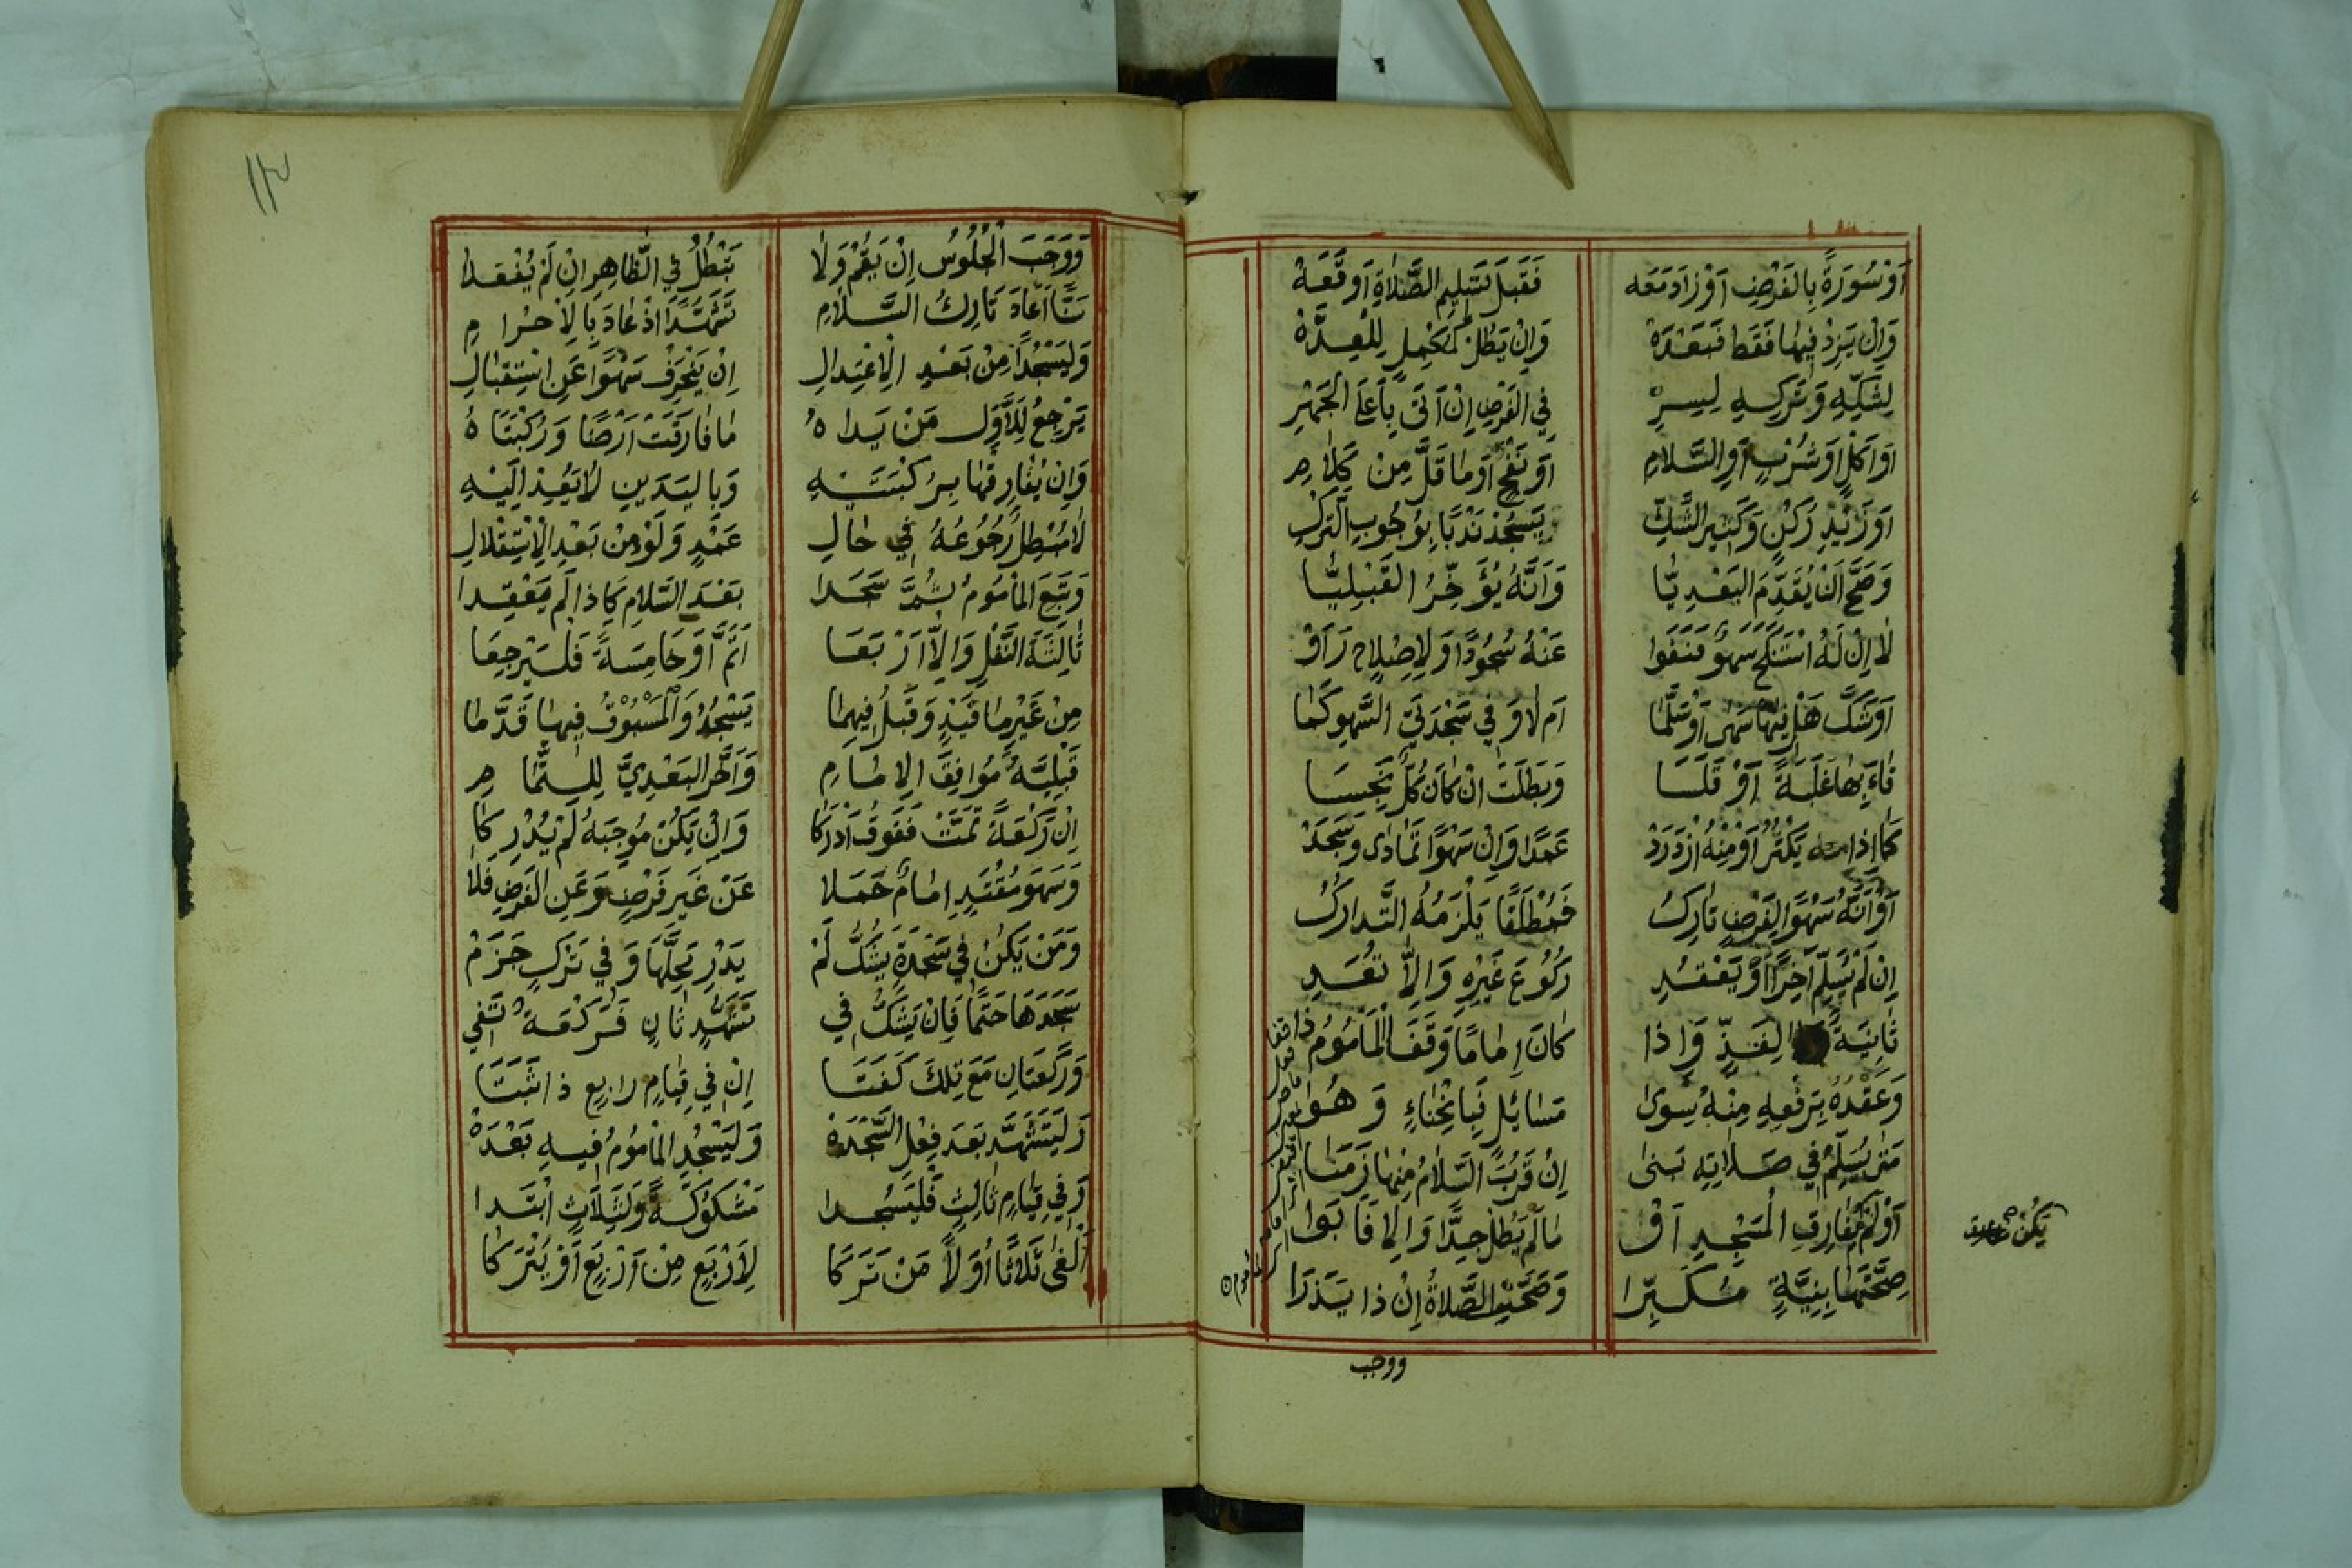 أَوْ سُورَةً بِالفَرْضِ أَوْ زَادَ مَعَه فَقَبْلَ تَسْلِيمِ الصَّلَاةِ أَوقَعَهْ
وَإِنْ يَزِدْ فِيهَا فَقَط فَبَعْدَهْ وَإِنْ يَطُلْ لَمْ لِلْعِدَّهْ
لِشَكِّهِ وَتَرْكِهِ لِسِرِّ فِي الفَرْضِ إِنْ أَتَى بِأَعلَى الجَهْرِ
أَوْ أَكْلٍ أَوْ شُرْبٍ أَوِ السَّلَامِ أَوْ نَفْخٍ أَوْ مَا قَلَّ مِنْ كَلَامِ
أَوْ زَيْدِ رُكْنٍ وَكَثِيرُ الشَّكِّ يَسْجُدْ نَدْبًا بِوُجُوبِ التَّرْكِ
وَصَحَّ أَنْ يُقَدَّمَ البَعْدِيَّا وَأَنَّهُ يُؤَخِّرُ القَبْلِيَّا
لَا إِنْ لَهُ اسْتَنْكَحَ سَهْوٌ فَنَفَوا عَنْهُ سُجُودًا وَلِإِصْلَاحٍ رَأَوْ
أَوْ شَكَّ هَلْ فِيهَا سَهَى أَوْ سَلَّمَا أَم لَا وَفِي سَجْدَتَيِ السَّهْوِ كَمَا
قَاءَ بِهَا غَلَبَةً أَوْ قَلَسَا وَبَطَلَتْ إِنْ كَانَ كُلٌّ نَجِسَا
كَمَا إِذَا يَكْثُرْ أَوْ مِنْهُ ازْدَرَدْ عَمْدًا وَإِنْ سَهْوًا تَمَادَى وَسَجَدْ
أَوْ أَنَّهُ سَهْوًا لِفَرْضٍ تَارِكُ فَمُطْلَقًا يَلْزَمُهُ التَّدَارُكُ
إِنْ لَمْ يُسَلِّمْ آخِرًا أَوْ يَعْقِدِ رُكُوعَ غَيْرِهِ وَإِلَّا تَغْدُ
ثَانِيَةً لِفَذٍّ وَإِذَا كَانَ إِمَامًا وَقَفَ المَأْمُومُ ذَا
وَعَقْدُهُ بِرَفْعِهِ مِنْهُ سِوَى مَسَائِلٍ فَبِانْحِنَاءٍ وَهُوَ
مَتَى يُسَلِّمْ فِي صَلَاتِهِ بَنَى إِنْ قَرُبَ السَّلَامُ مِنْهَا زَمَنَا
أَوْ لَمْ يُفَارِقِ الْمَسْجِدِ أَوْ مَا لَمْ يَطُلْ جِدًّا وَإِلَّا فَأَبَوا
صِحَّتَهَا بِنِيَّةٍ مُكَبِّرَا وَصَحَّتِ الصَّلَاةُ إِنْ ذَا يَذَرَا
يَكُنْ
ووجب
١٢
وَوَجَبَ الْجُلُوسُ إِنْ يَقُمْ وَلَا تَبْطُلُ فِي الظَّاهِرِ إِنْ لَمْ يُفْعَلَا
ثُمَّ أَعَادَ تَارِكُ السَّلَامِ تَشَهُّدًا إِذْ عَادَ بِالإِحْرَامِ
وَلْيَسْجُدًا مِنْ بَعْدِ الِاعْتِدَالِ إِنْ يَنْحَرِفْ سَهْوًا عَنِ اسْتِقْبَالِ
يَرْجِعُ لِلأَوَّلِ مَنْ يَدَاهُ مَا فَارَقَتْ أَرْضًا وَرُكْبَتَاهُ
وَإِن يُفَارِقْهَا بِرُكْبَتَيْهِ وَبِاليَدَيْنِ لَا يَعُدْ إِلَيْهِ
لَا مُبْطِلٌ رُجُوعُهُ فِي حَالِ عَمْدٍ وَلَوْ مِنْ بَعْدِ الِاسْتِقْلَالِ
وَتَبِعَ المَأْمُومُ ثُمَّ سَجَدَا بَعْدَ السَّلَامِ كَإِذَا لَمْ يَعْقِدَا
ثَالِثَةَ النَّفْلِ وَإِلَّا أَرْبَعَا أَتَمَّ أَوْ خَامِسَةً فَلْيَرْجِعَا
مِنْ غَيْرِ مَا قَيْدٍ وَقَبْلُ فِيهِمَا يَسْجُدُ وَالمَسْبُوقُ فِيهَا قَدَّمَا
قَبْلِيَّهُ مُوَافِقَ الإِمَامِ وَأَخَّرَ البَعْدِيَّ لِلتَّمَامِ
إِنْ رَكْعَةً تَمَّتْ فَفَوقُ أَدْرَكَا وَإِنْ يَكُنْ مُوجِبَهُ لَمْ يُدْرِكَا
وَسَهْوَ مُقْتَدٍ إِمَامٌ حَمَلَا عَنْ غَيْرِ فَرْضٍ وَعَنِ الفَرْضِ فَلَا
وَمَنْ يَكُنْ فِي سَجْدَةٍ يَشُكُّ لَمْ يَدْرِ مَحِلَّهَا وَفِي تَرْكٍ جَزَمْ
سَجَدَهَا حَتْمًا فَإِنْ يَشُكَّ فِي تَشَهُّدٍ ثَانٍ فَرَكْعَةٌ تَفِي
وَرَكْعَتَانِ مَعَ تِلْكَ كَفَتَا إِنْ فِي قِيَامِ رَابِعٍ ذَا ثَبَتَا
وَلْيَتَشَهَّدْ بَعدَ فِعْلِ السَّجْدَهْ وَلْيَسْجُدِ المَأْمُومُ فِيهِ بَعْدَهْ
وَفِي قِيَامِ ثَالِثٍ فَلْيَسْجُدَا مَشْكُوكَةً وَبِثَلَاثٍ ابْتَدَا
أَلغَى ثَلَاثًا أُوَلًا مَنْ تَرَكَا لِأَرْبَعٍ مِنْ أَرْبَعٍ أَوْ يُتْرَكَا